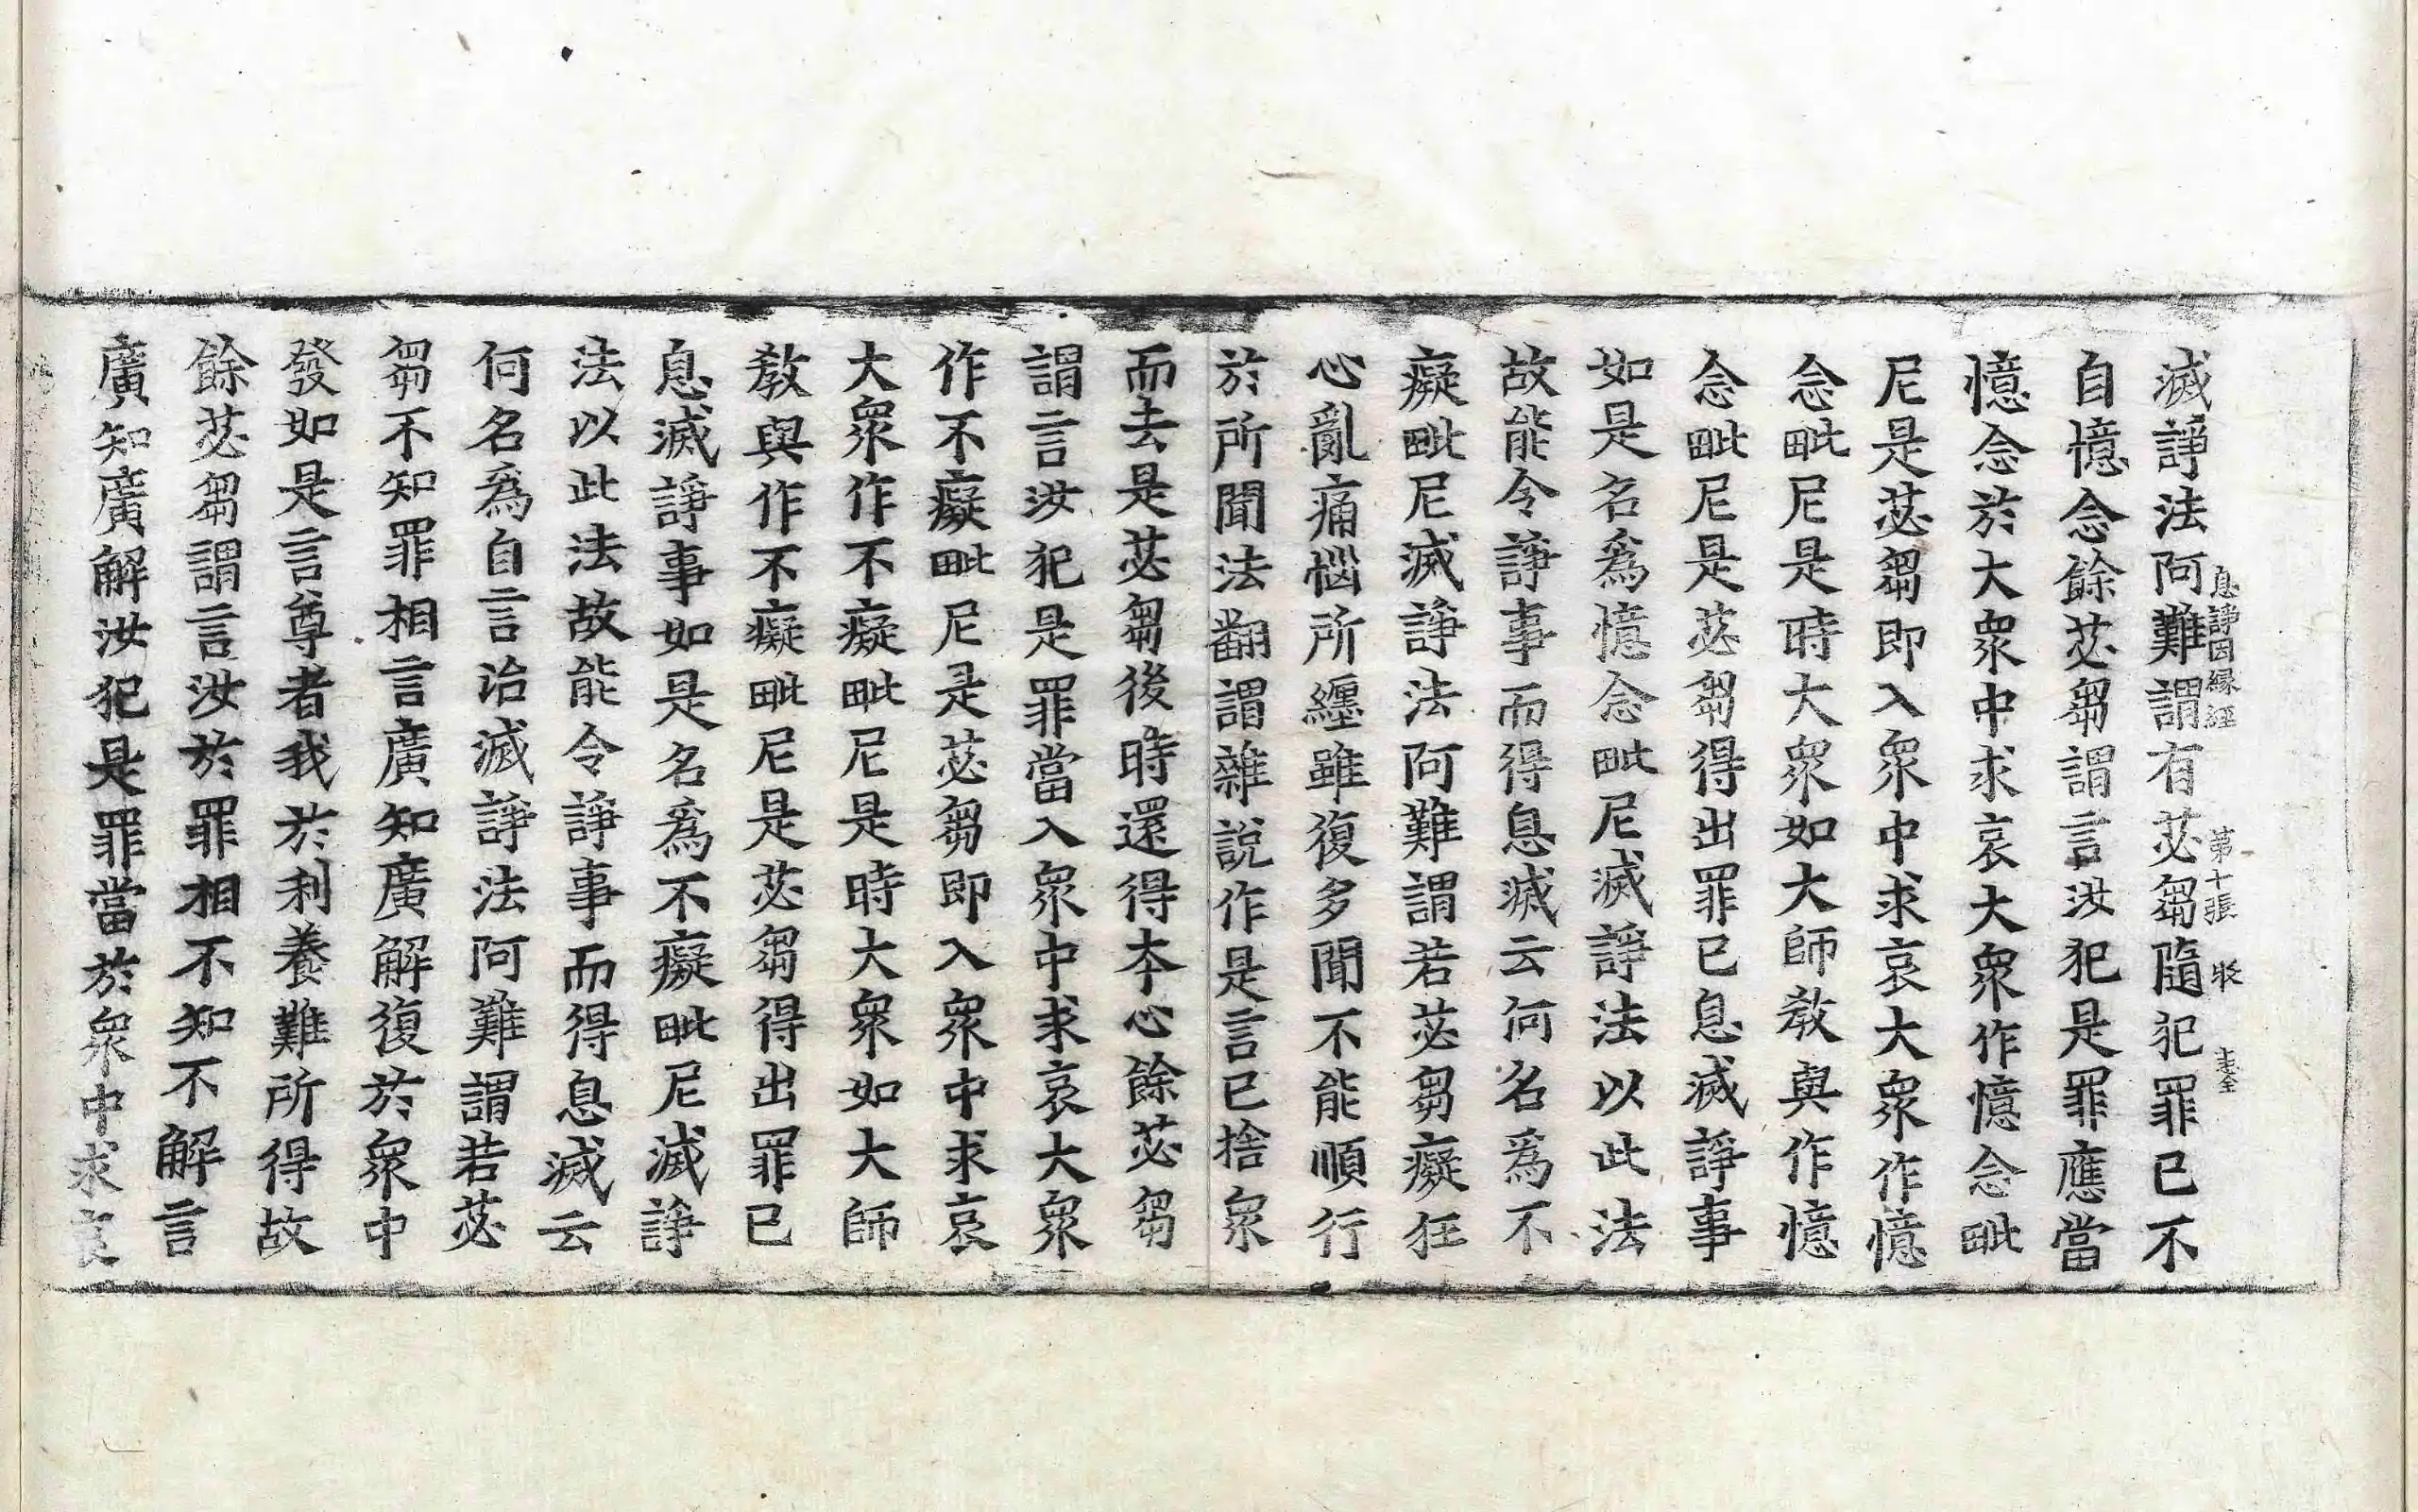 息諍因縁經 第十張
滅諍法阿難謂有苾芻隨犯罪已不
自憶念餘苾芻謂言汝犯是罪應當
憶念於大衆中求哀大衆作憶念毗
尼是苾芻即入衆中求哀大衆作憶
念毗尼是時大衆如大師教與作憶
念毗尼是苾芻得出罪已息滅諍事
如是名爲憶念毗尼滅諍法以此法
故能令諍事而得息滅云何名爲不
癡毗尼滅諍法阿難謂若苾芻癡狂
心亂痛惱所纏雖復多聞不能順行
於所聞法翻謂雜說作是言已捨衆
而去是苾芻後時還得本心餘苾芻
謂言汝犯是罪當入衆中求哀大衆
作不癡毗尼是苾芻即入衆中求哀
大衆作不癡毗尼是時大衆如大師
教與作不癡毗尼是苾芻得出罪已
息滅諍事如是名爲不癡毗尼滅諍
法以此法故能令諍事而得息滅云
何名爲自言治滅諍法阿難謂若苾
芻不知罪相言廣知廣解復於衆中
發如是言尊者我於利養難所得故
餘苾芻謂言汝於罪相不知不解言
廣知廣解汝犯是罪當於衆中求哀